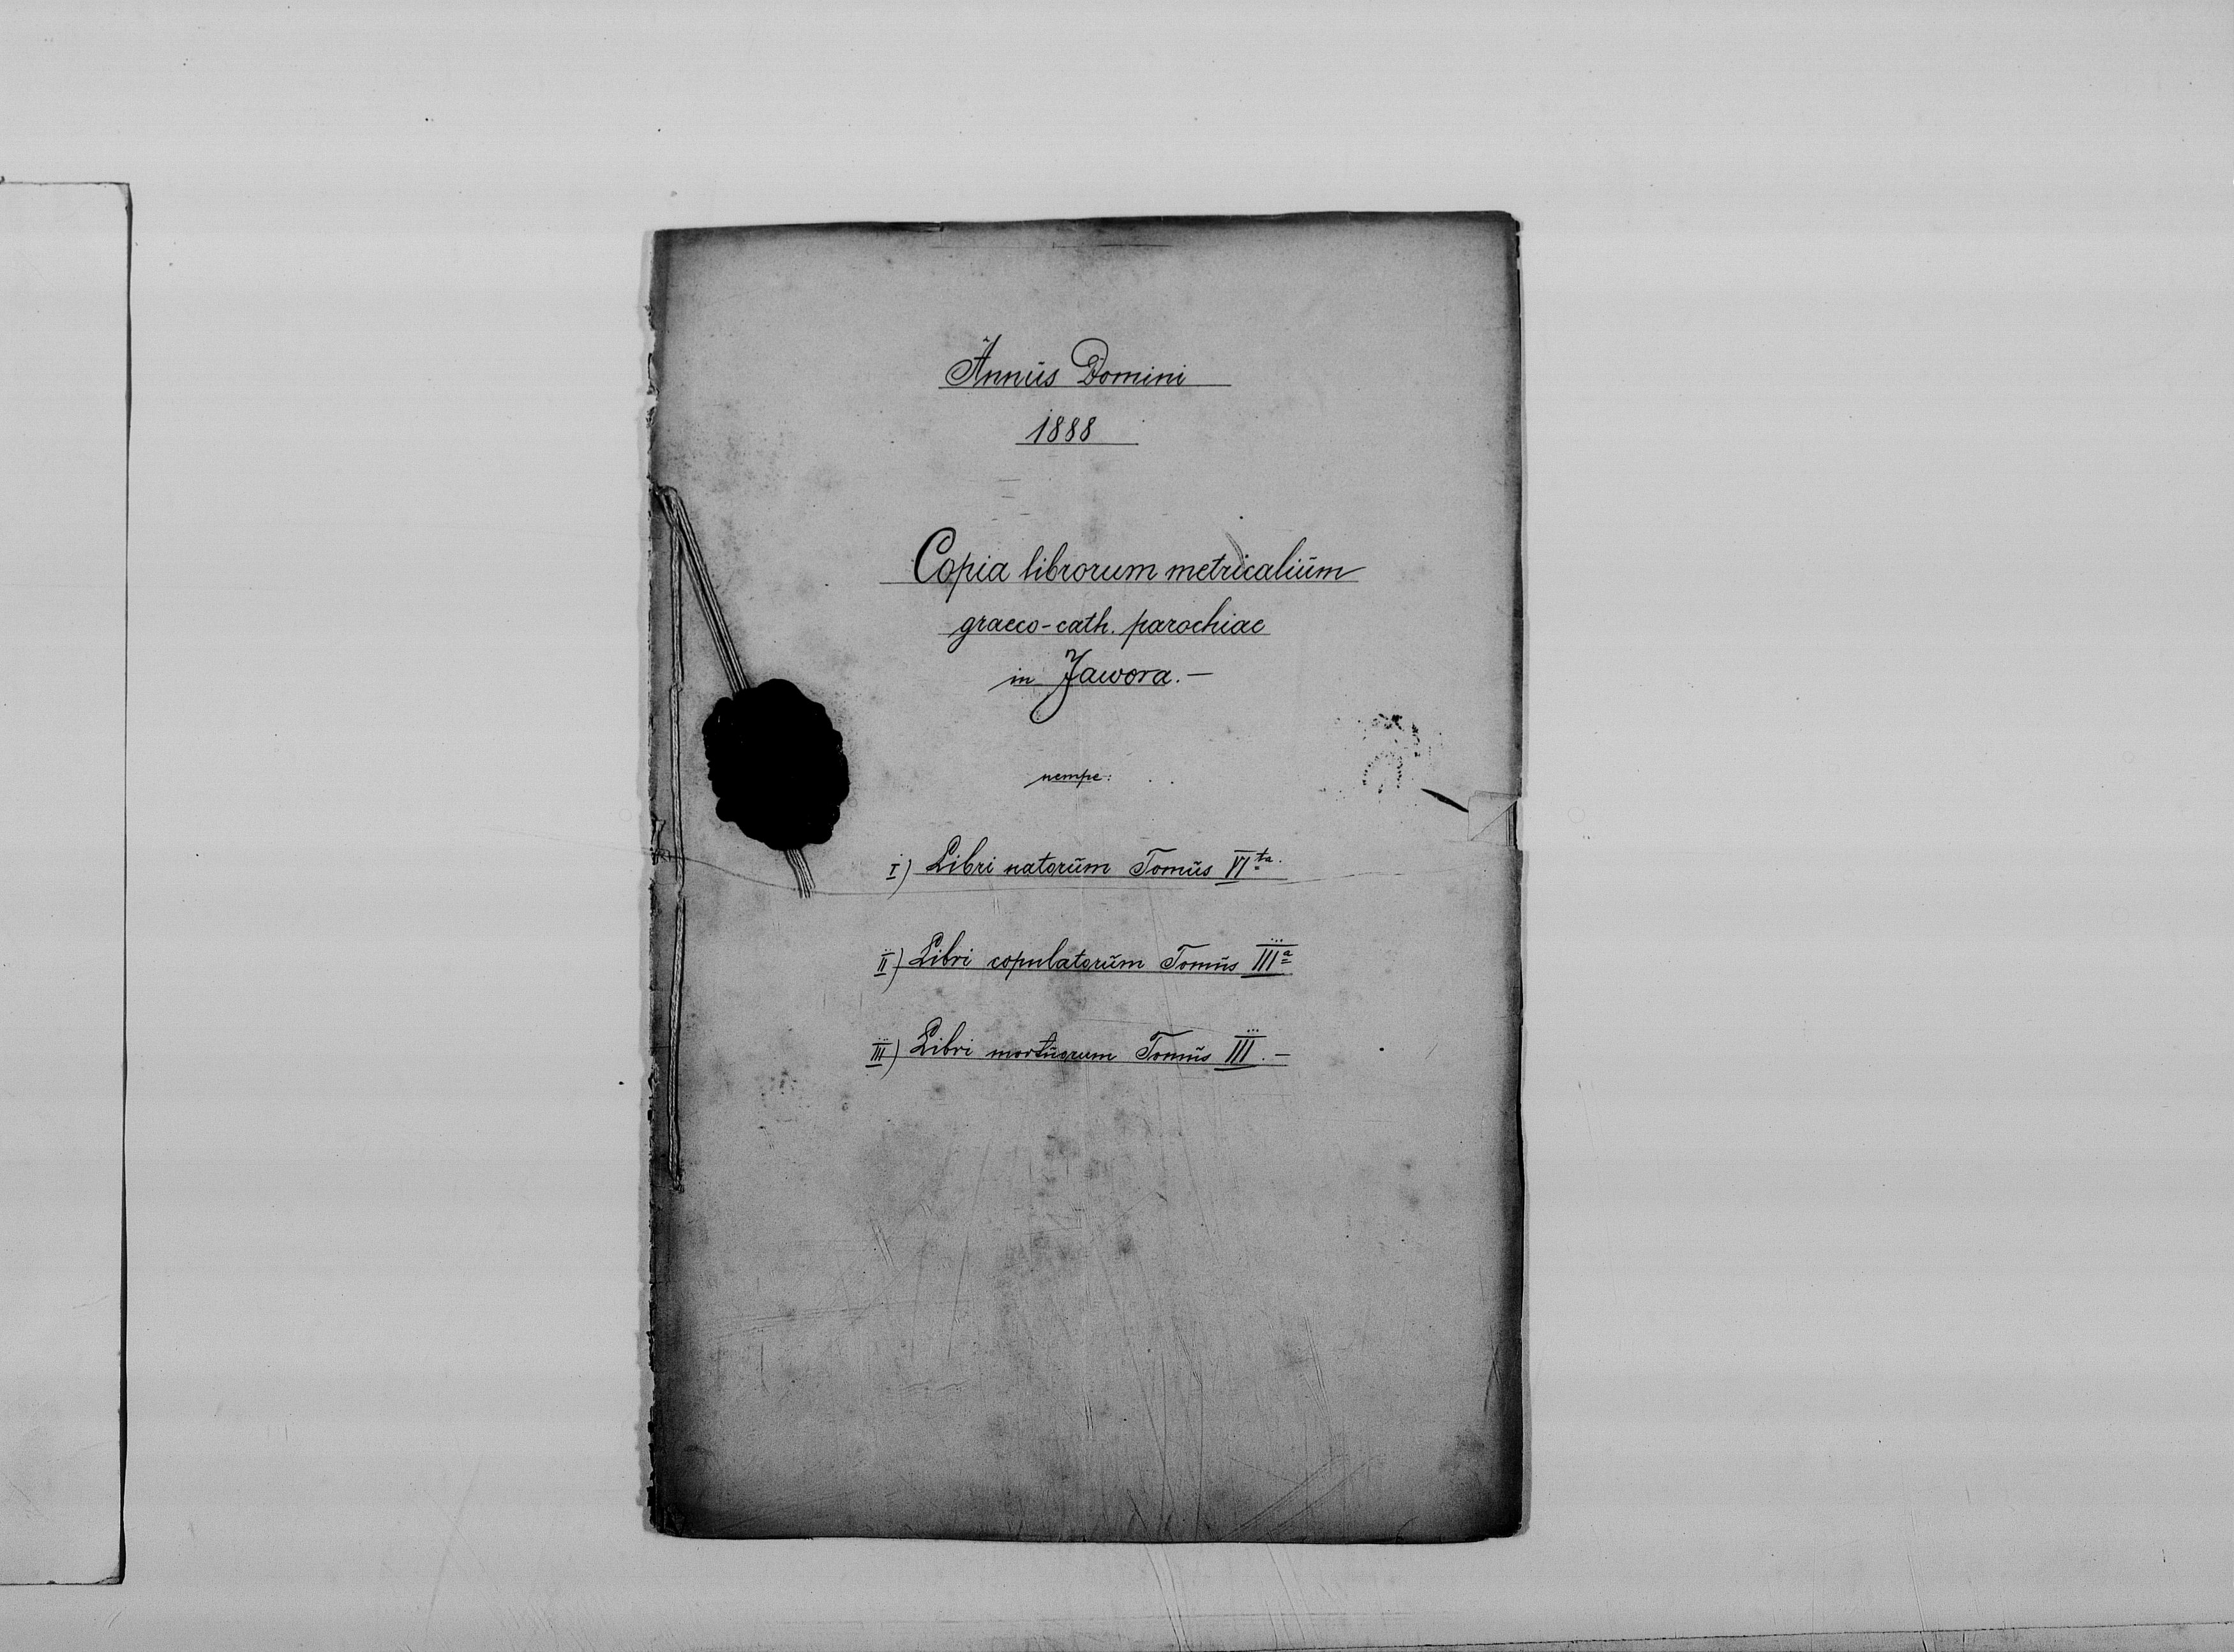 Annus Domini
1888
Copia librorum metricalium
graeco-cath. parochiae
in Jawora.—
nempe:
I) Libri natorum Tomus VI ta.
II) Libri copulatorum Tomus III a
III) Libri mortuorum Tomus III.—